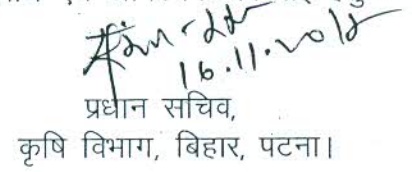 16.11.2012
प्रधान सचिव,
कृषि विभाग, बिहार, पटना।